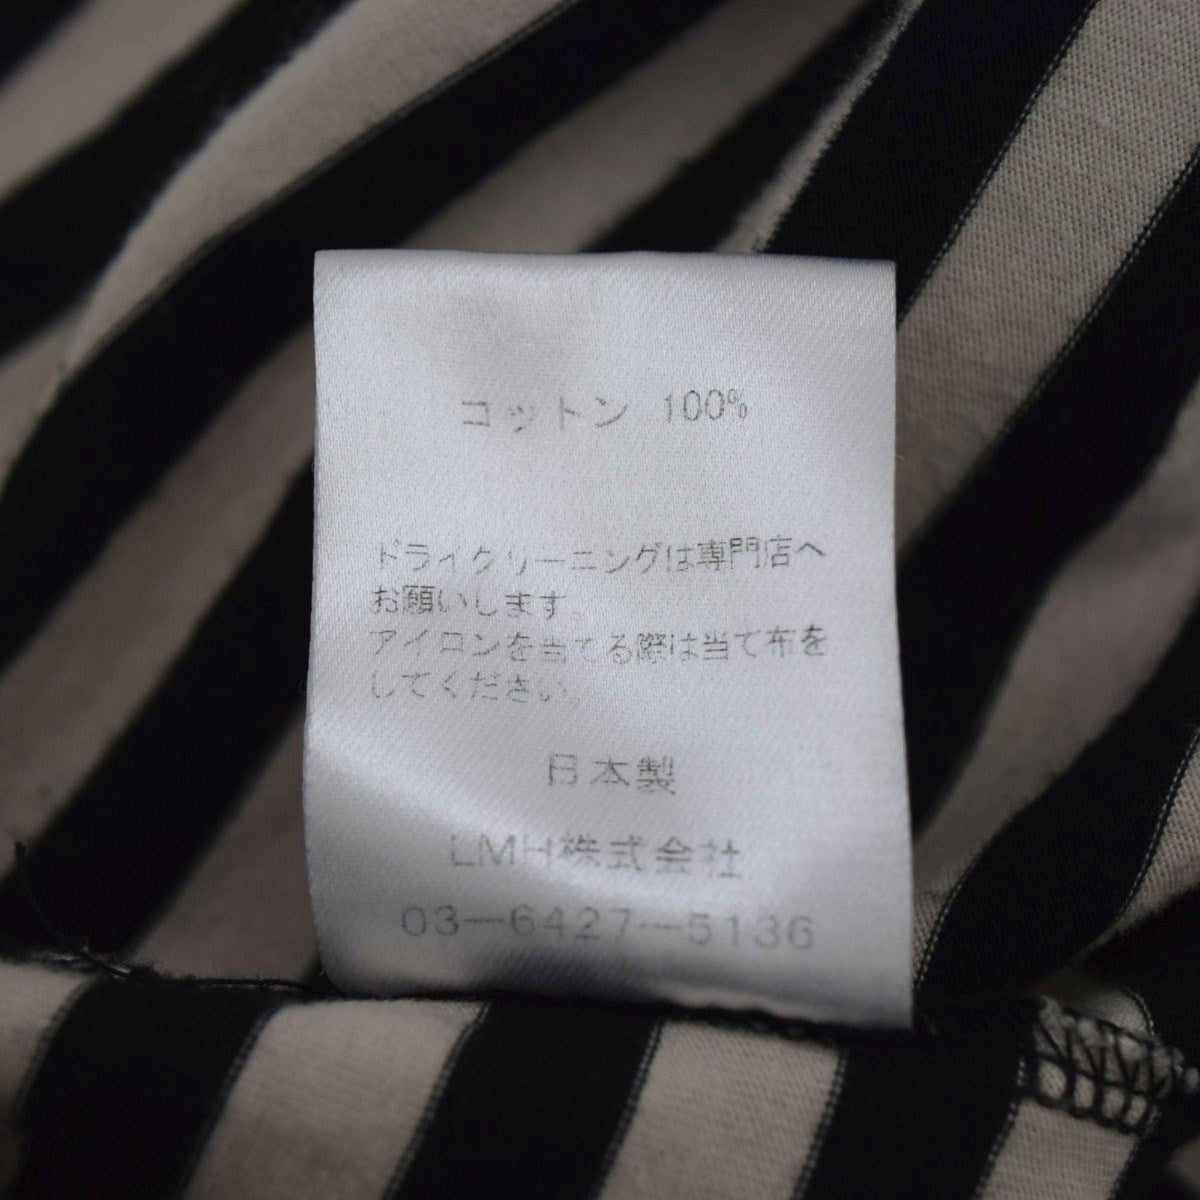 コットン 100%
ドライクリーニングは専門店へ
お願いします。
アイロンを当てる際は当て布を
してください。
日本製
LMH株式会社
03-6427-5136